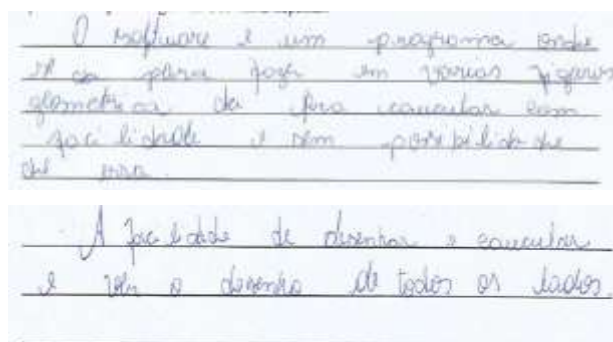 O software é um programa onde
se da para fazer em varias figuras
geometricas da pra caucular com
facilidade e sem possibilidade
de erro.
A facilidade de desenhar e caucular
e ver o desenho de todos os lados.